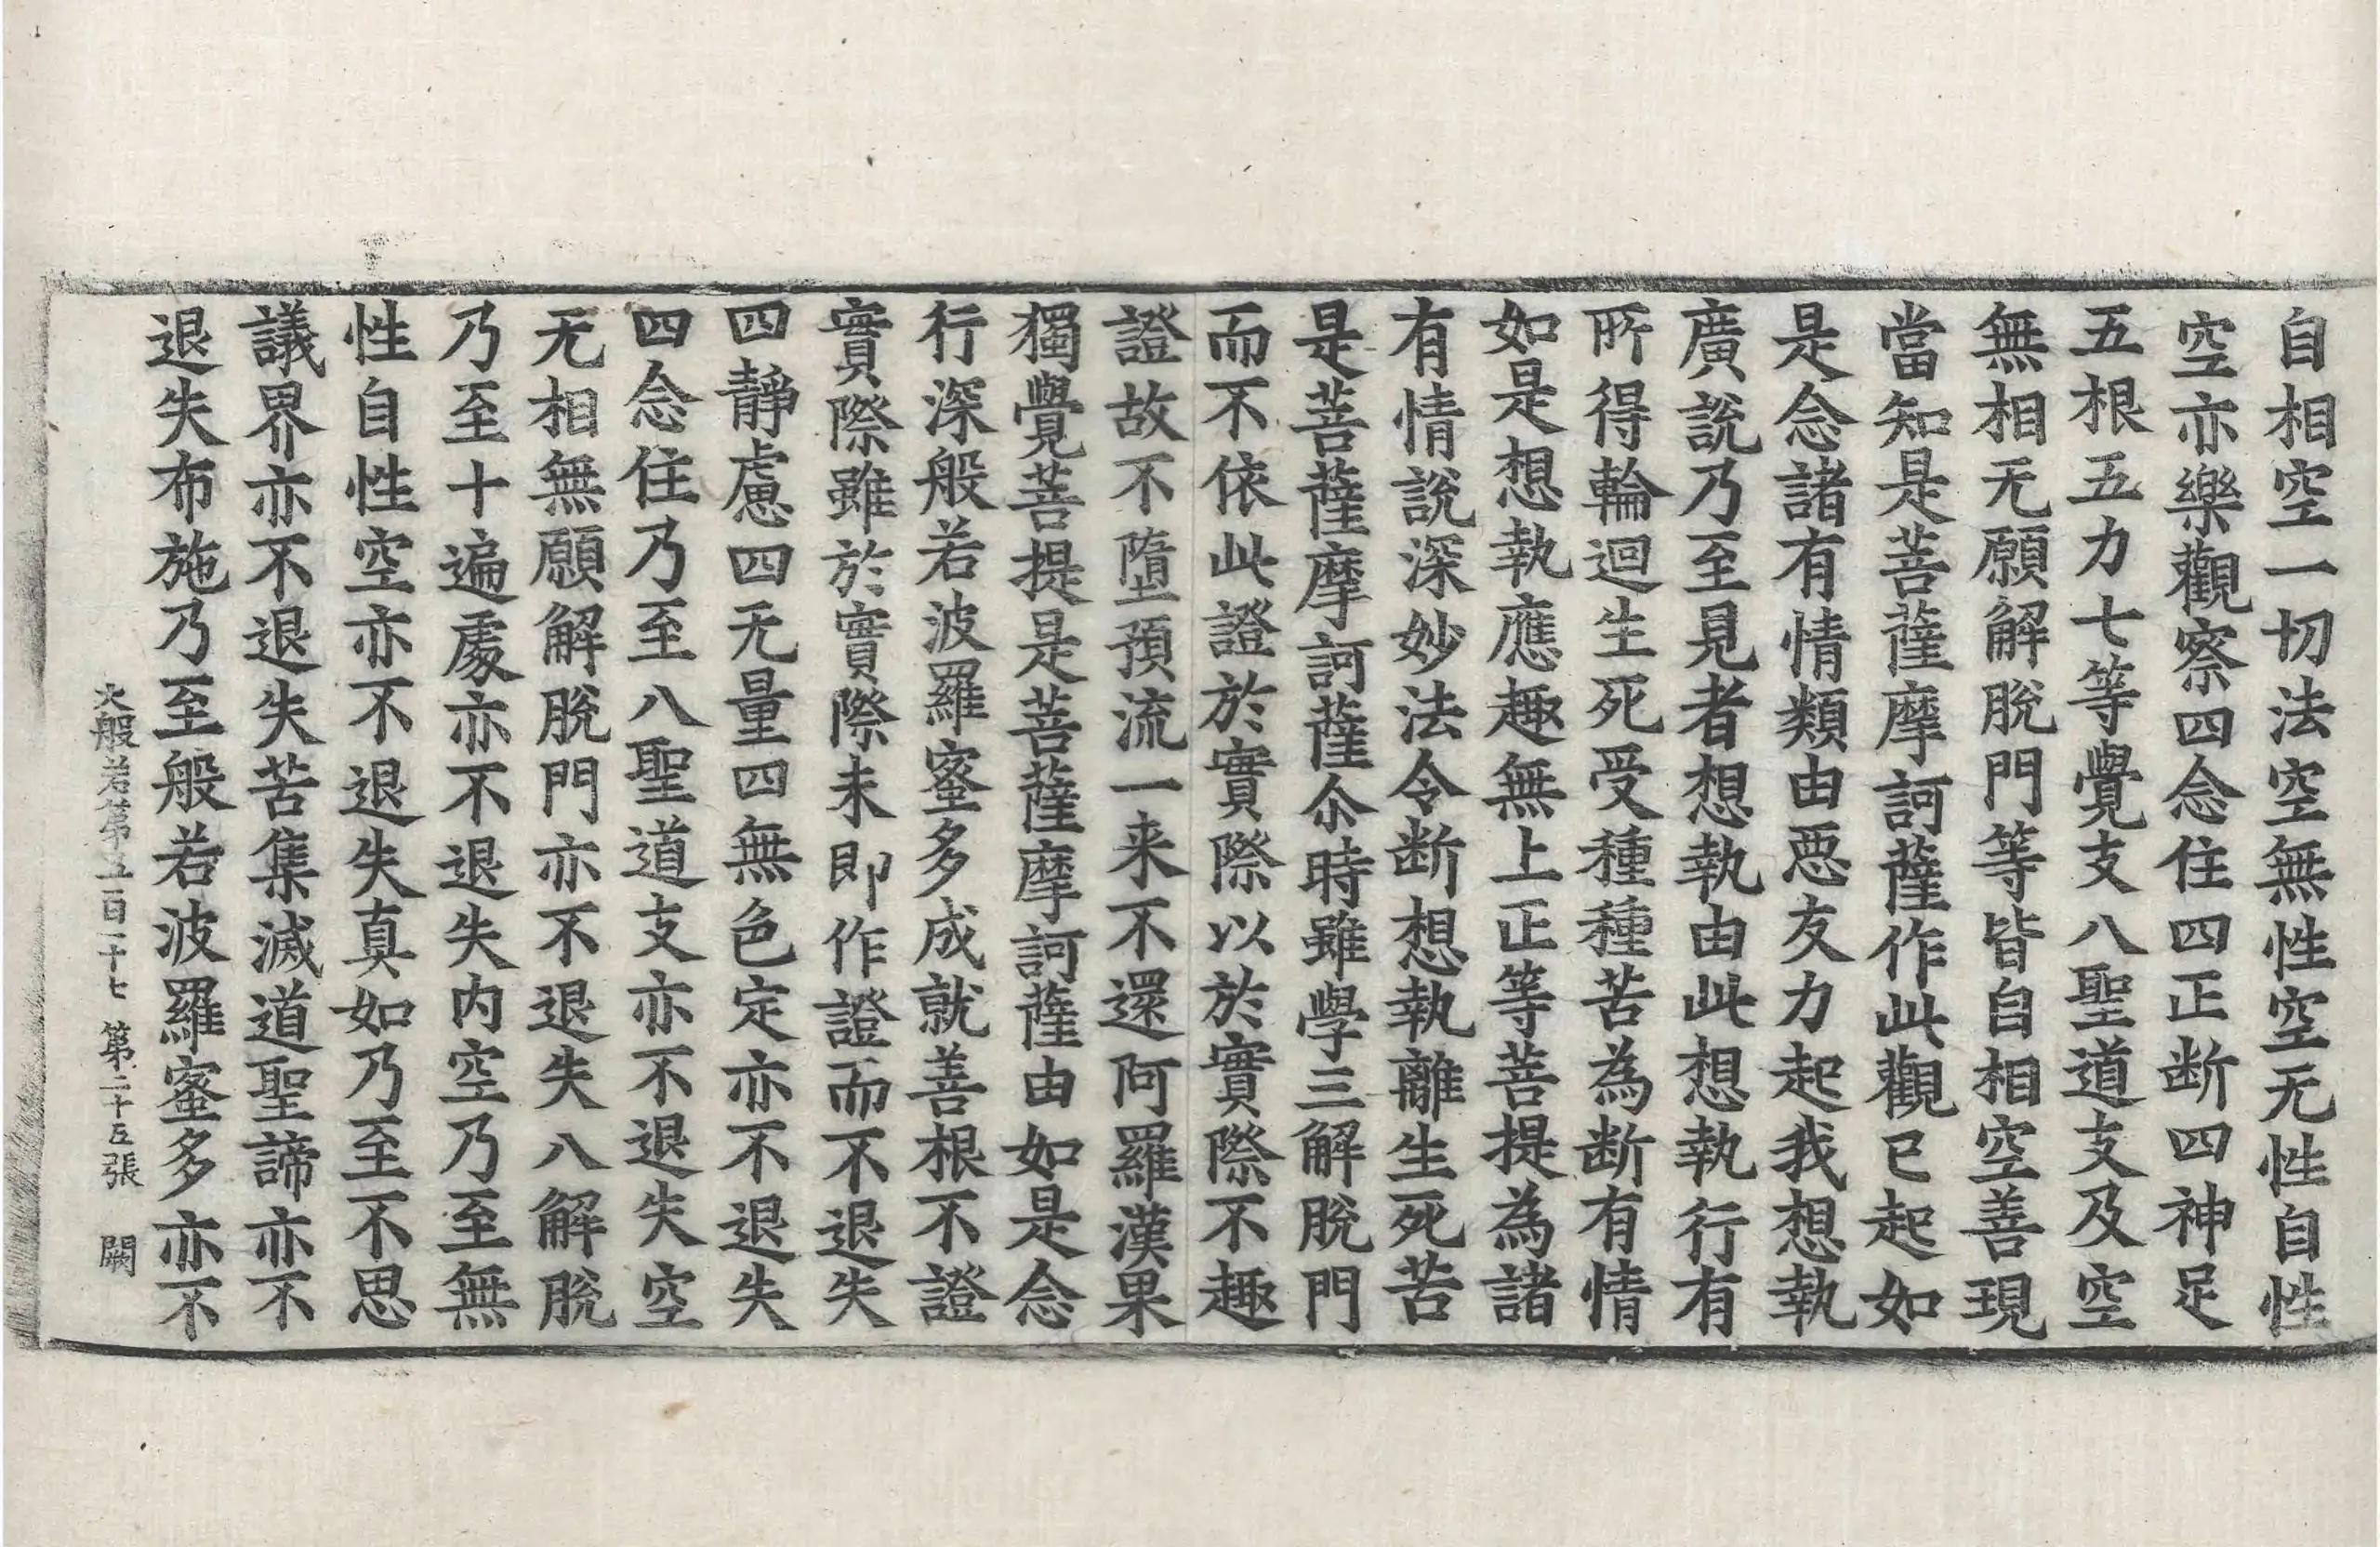 自相空一切法空無性空无性自性
空亦樂觀察四念住四正断四神足
五根五力七等覺支八聖道支及空
無相无願解脫門等皆自相空善現
當知是菩薩摩訶薩作此觀已起如
是念諸有情類由惡友力起我想執
廣說乃至見者想執由此想執行有
所得輪迴生死受種種苦為断有情
如是想執應趣無上正等菩提為諸
有情說深妙法令断想執離生死苦
是菩薩摩訶薩尒時雖學三解脫門
而不依此證於實際以於實際不趣
證故不墮預流一来不還阿羅漢果
獨覺菩提是菩薩摩訶薩由如是念
行深般若波羅蜜多成就善根不證
實際雖於實際未即作證而不退失
四靜慮四无量四無色定亦不退失
四念住乃至八聖道支亦不退失空
无相無願解脫門亦不退失八解脫
乃至十遍處亦不退失内空乃至無
性自性空亦不退失真如乃至不思
議界亦不退失苦集滅道聖諦亦不
退失布施乃至般若波羅蜜多亦不
大般若第五百一十七 第二十五張 闕